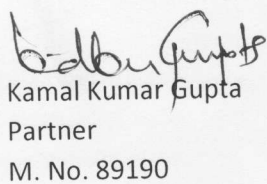 Kamal Kumar Gupta
Partner
M. No. 89190